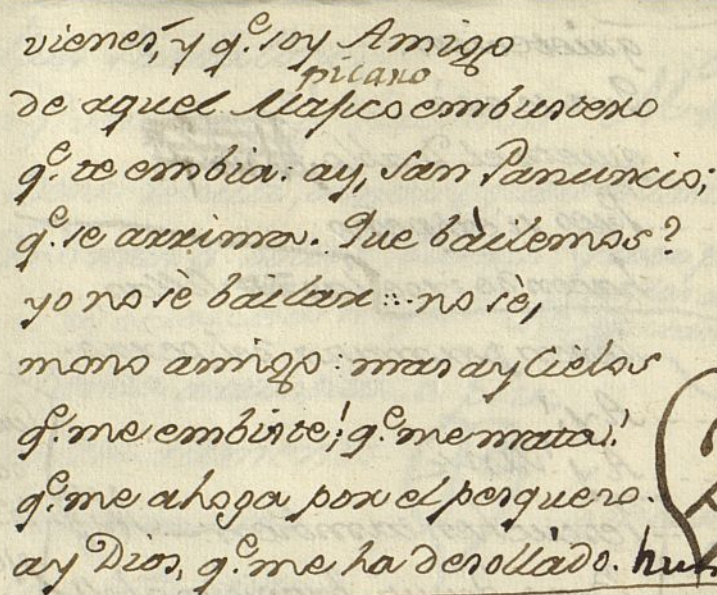 vienes, y q.e soy Amigo
picaro
de aquel Marco embustero
q.e te embia: ay, San Panuncio;
q.e se arrima. Que bailemos?
yo no sè bailar :: no sè,
mono amigo: mas ay Cielos
q.e me embiste! q.e me mata!
q.e me ahoga por el pesquezo.
ay Dios, q.e me ha desollado.